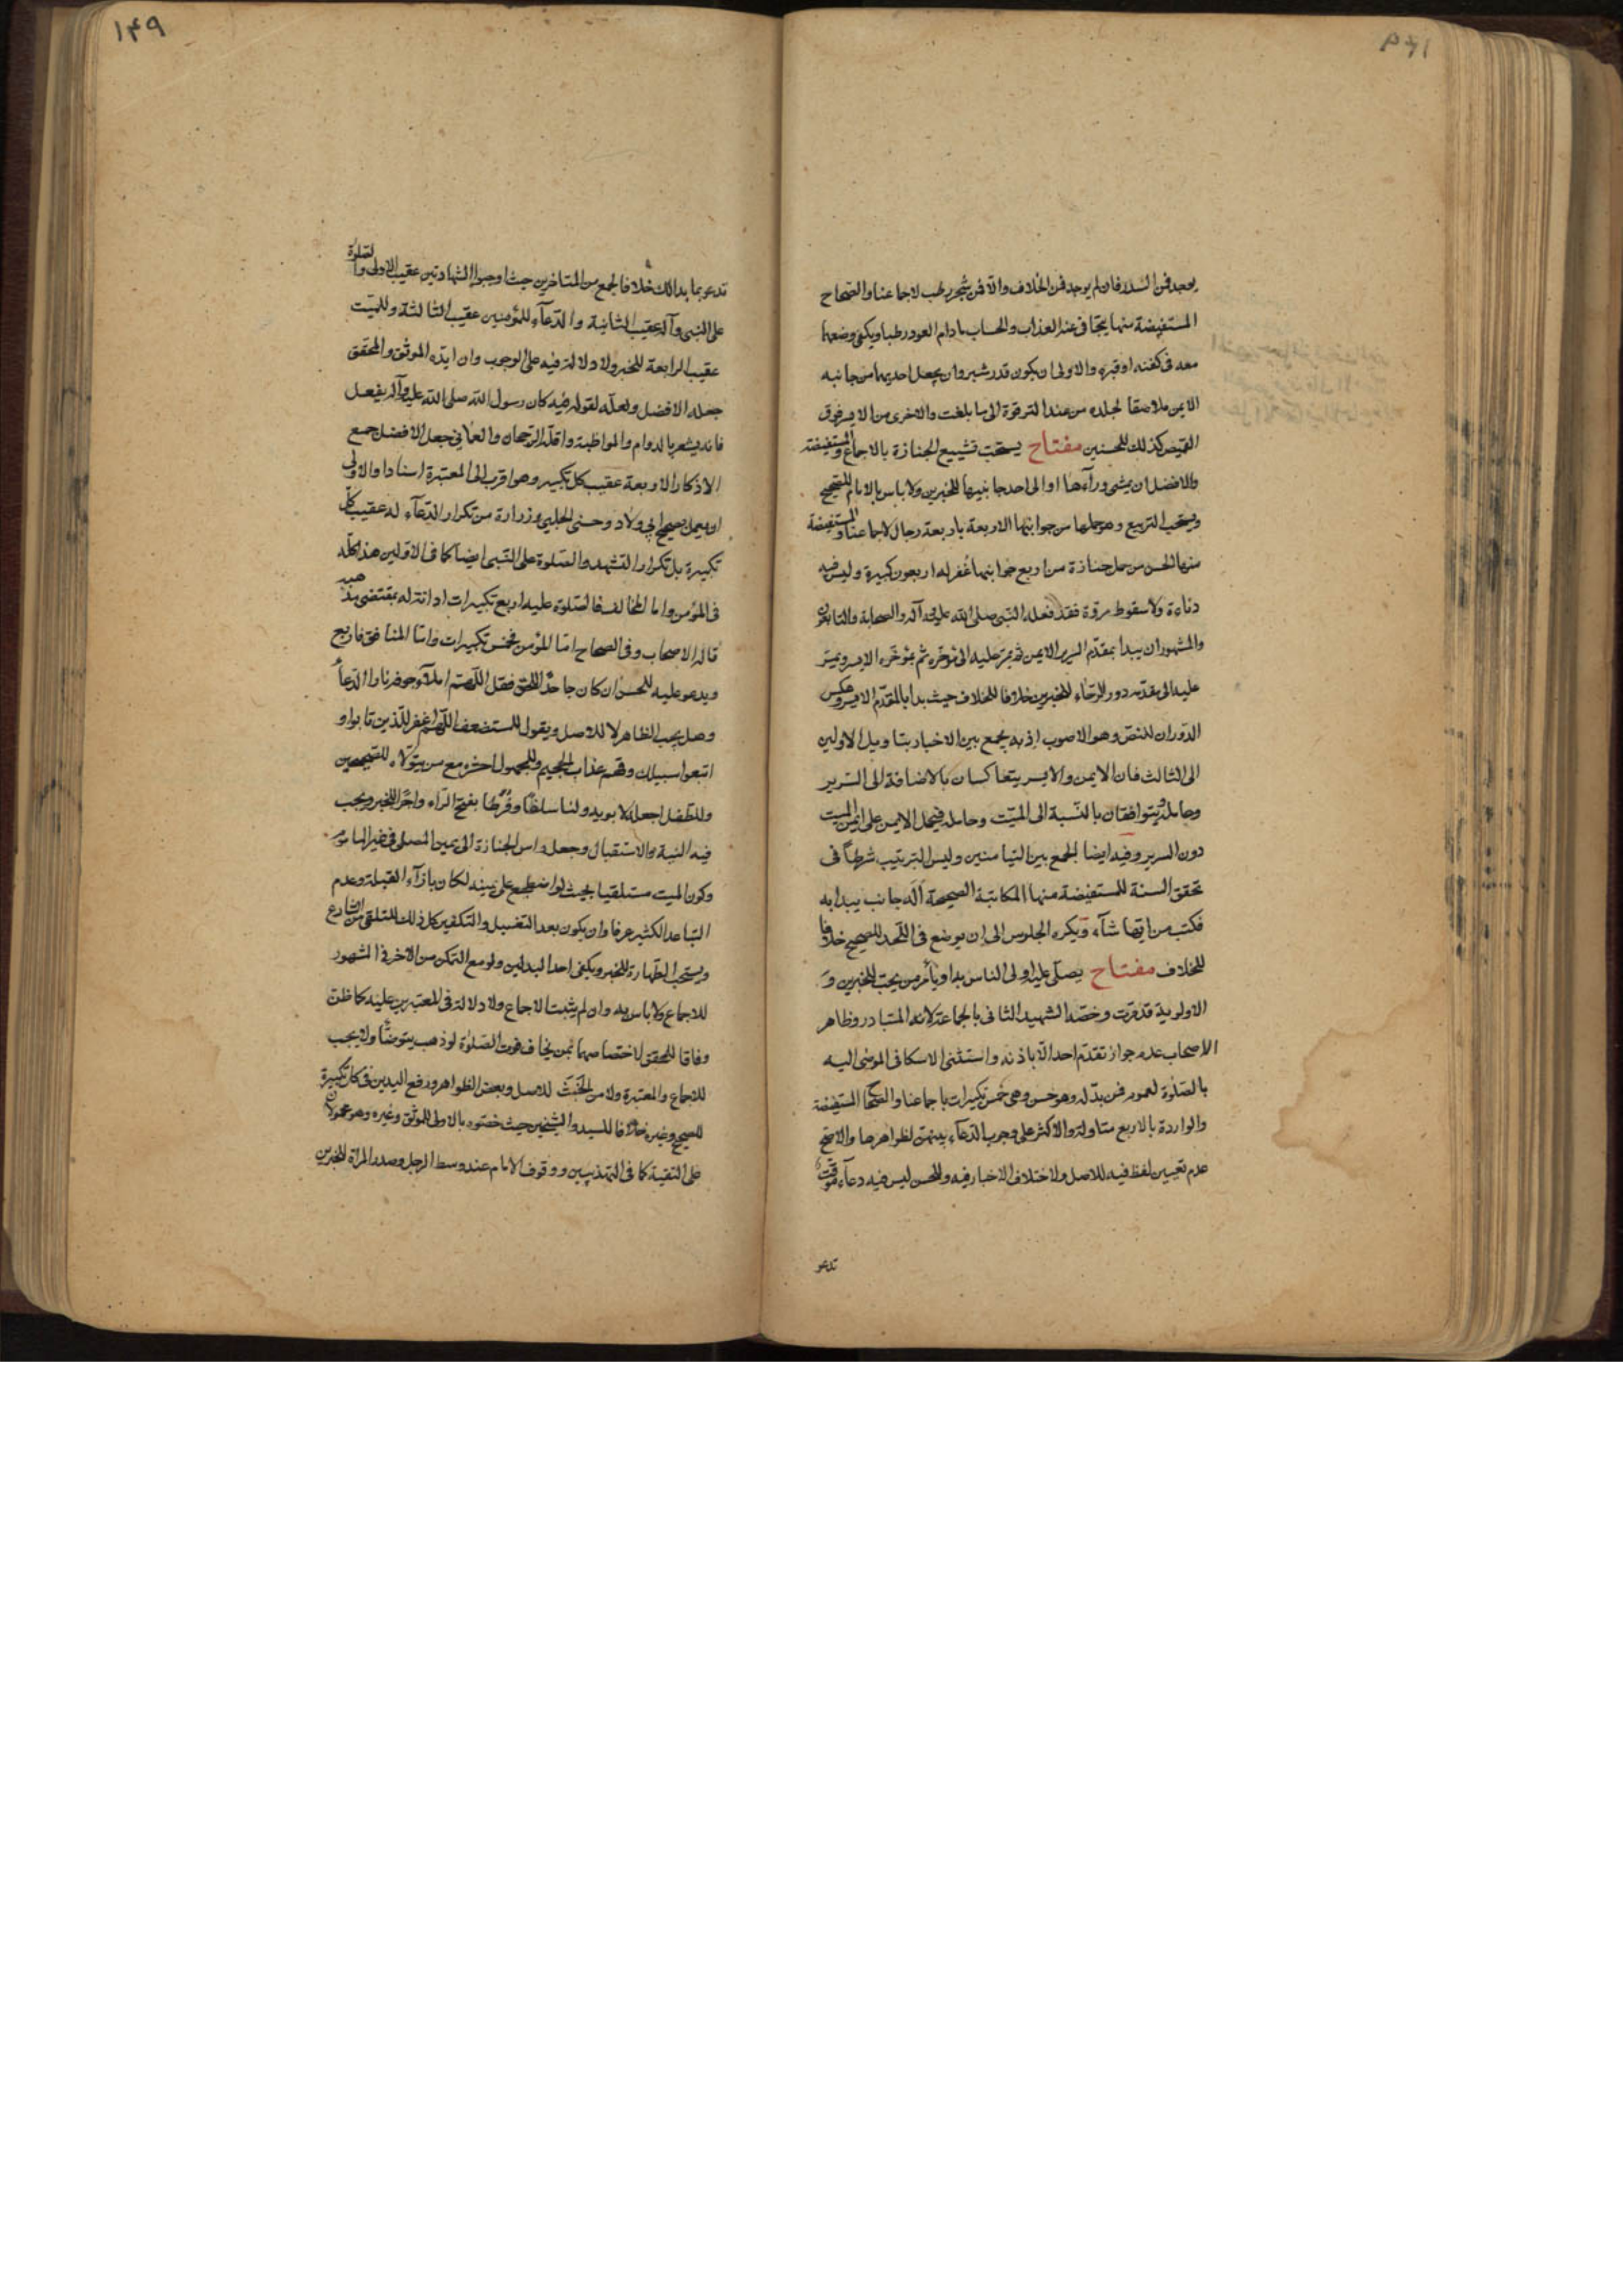 يوجد فمن السدر فان لم يوجد فمن الخلاف والا فمن شجر رطب لاجماعنا والصحاح
المستفيضة منها يتجافى عنه العذاب والحساب مادام العود رطبا ويكفى وضعهما
معه فى كفنه او قبره والاولى ان يكون قدر شبر وان يجعل احديهما من جانبه
الايمن ملاصقا لجلده من عند الترقوة الى ما بلغت والاخرى من الايسر فوق
القميص كذلك للحسنين مفتاح يستحب تشييع الجنازة بالاجماع والمستفيضة
والافضل ان يمشى ورآءها او الى احد جانبيها للخبرين ولا باس بالامام للصحيح
ويستحب التربيع وهو حملها من جوانبها الاربعة باربعة رجال لاجماعنا والمستفيضة
منها الحسن من حمل جنازة من اربع جوانبها غفر له اربعون كبيرة وليس فيه
دناءة ولا سقوط مروة فقد فعله النبى صلى الله عليه وآله والصحابة والتابعون
والمشهور ان يبدا بمقدم السرير الايمن ثم يمر عليه الى مؤخره ثم بمؤخره الايسر ويمر
عليه الى مقدمه دور الرحاء للخبرين خلافا للخلاف حيث بدا بالمقدم الايسر وعكس
الدوران للنص وهو الاصوب اذ به يجمع بين الاخبار بتاويل الاولين
الى الثالث فان الايمن والايسر يتعاكسان بالاضافة الى السرير
وحامله ويتوافقان بالنسبة الى الميت وحامله فيحمل الايمن على ايمن الميت
دون السرير وفيه ايضا الجمع بين التيامنين وليس الترتيب شرطا فى
تحقق السنة للمستفيضة منها المكاتبة الصحيحة اله جانب يبدا به
فكتب من ايها شآء ويكره الجلوس الى ان يوضع فى اللحد للصحيح خلافا
للخلاف مفتاح يصلى عليه اولى الناس به او يأمر من يحب للخبرين و
الاولوية قد مرت وخصه الشهيد الثانى بالجماعة لانه المتبادر وظاهر
الاصحاب عدم جواز تقدم احد الا باذنه واستثنى الاسكافى الموصى اليه
بالصلوة لعموم فمن بدله وهو حسن وهى خمس تكبيرات باجماعنا والصحاح المستفيضة
والواردة بالاربع متاولة والاكثر على وجوب الدعآء بينهن لظواهرها والاصح
عدم تعيين لفظ فيه للاصل ولاختلاف الاخبار فيه وللحسن ليس فيه دعآء موقت
تدعو
١٤٩
تدعو بما بدا لك خلافا لجمع من المتاخرين حيث اوجبوا الشهادتين عقيب الاولى والصلوة
على النبى وآله عقيب الثانية والدعآء للمؤمنين عقيب الثالثة وللميت
عقيب الرابعة للخبر ولا دلالة فيه على الوجوب وان ايده الموثق والمحقق
جعله الافضل ولعله لقوله فيه كان رسول الله صلى الله عليه وآله يفعل
فانه يشعر بالدوام والمواظبة واقله الرجحان والعمانى جعل الافضل جمع
الاذكار الاربعة عقيب كل تكبيره وهو اقرب الى المعتبرة اسنادا والاولى
او يعمل بصحيح ابى ولاد وحسنى الحلبى وزرارة من تكرار الدعآء له عقيب كل
تكبيرة بل تكرار التشهد والصلوة على النبى ايضا كما فى الاولين هذا كله
فى المؤمن واما المخالف فالصلوة عليه اربع تكبيرات ادانة له بمقتضى مذهبه
قاله الاصحاب وفى الصحاح اما المؤمن فخمس تكبيرات واما المنافق فاربع
ويدعو عليه للحسن ان كان جاحدا للحق فقل اللهم املأ جوفه نارا الدعآ
وهل يجب الظاهر لا للاصل ويقول للمستضعف اللهم اغفر للذين تابوا و
اتبعوا سبيلك وقهم عذاب الجحيم وللمجهول احشره مع من يتولاه للصحيحين
وللطفل اجعله لابويه ولنا سلفا وفرطا بفتح الراء واجرا للخبر ويجب
فيه النية والاستقبال وجعل راس الجنازة الى يمين المصلى فى غير الماموم
وكون الميت مستلقيا بحيث لو اضطجع على يمينه لكان بازآء القبلة وعدم
التباعد الكثير عرفا وان يكون بعد التغسيل والتكفين كل ذلك للتلقى من الشارع
ويستحب الطهارة للخبر ويكفى احد البدلين ولو مع التمكن من الاخر فى المشهور
للاجماع ولا باس به وان لم يثبت الاجماع ولا دلالة فى المعتبرين عليه كما ظن
وفاقا للمحقق لاختصاصهما بمن يخاف فوت الصلوة لو ذهب يتوضأ ولا يجب
للاجماع والمعتبرة ولا من الخبث للاصل وبعض الظواهر ورفع اليدين فى كل تكبيرة
للصحيح وغيره خلافا للسيد والشيخين حيث خصوه بالاولى للموثق وغيره وهو محمولان
على التقية كما فى التهذيبين ووقوف الامام عند وسط الرجل وصدر المراة للخبرين